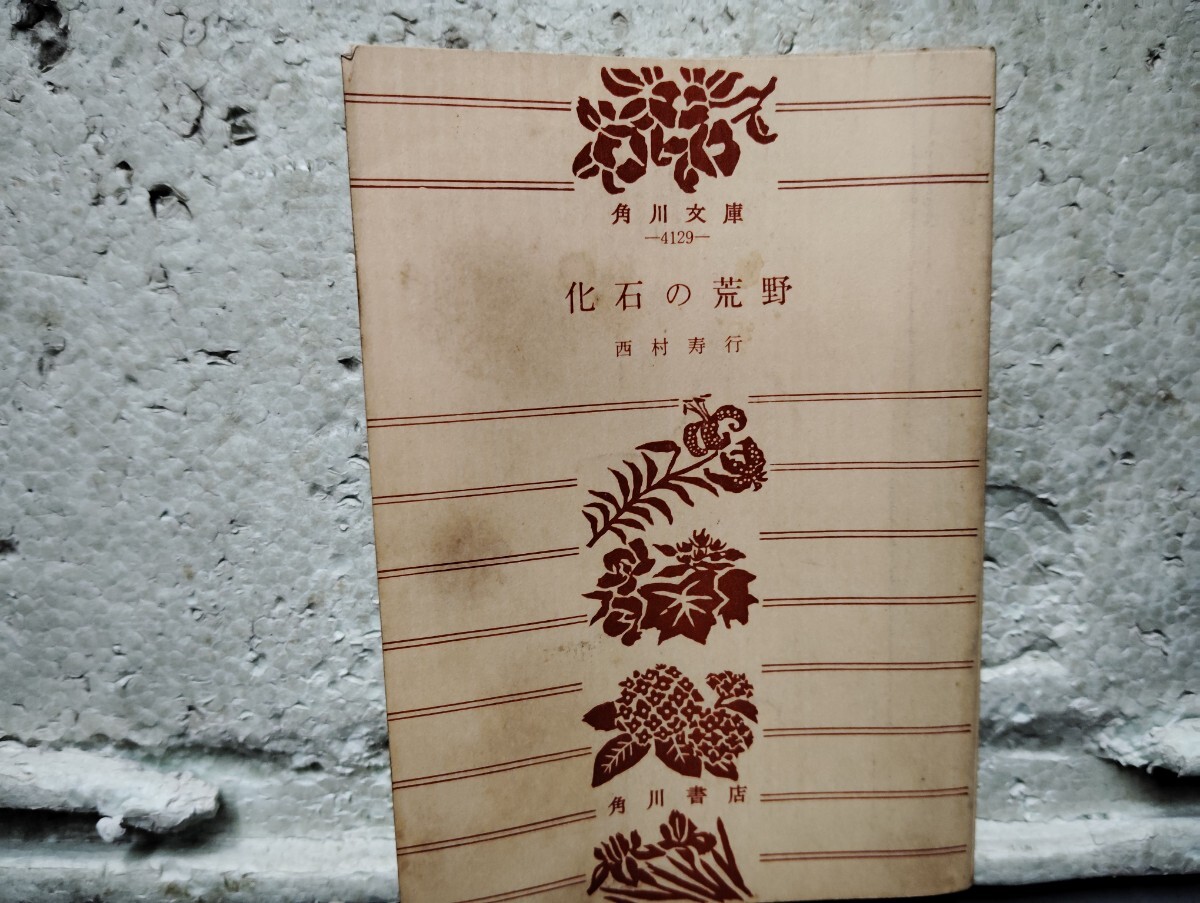 角川文庫
—4129—
化石の荒野
西村寿行
角川書店